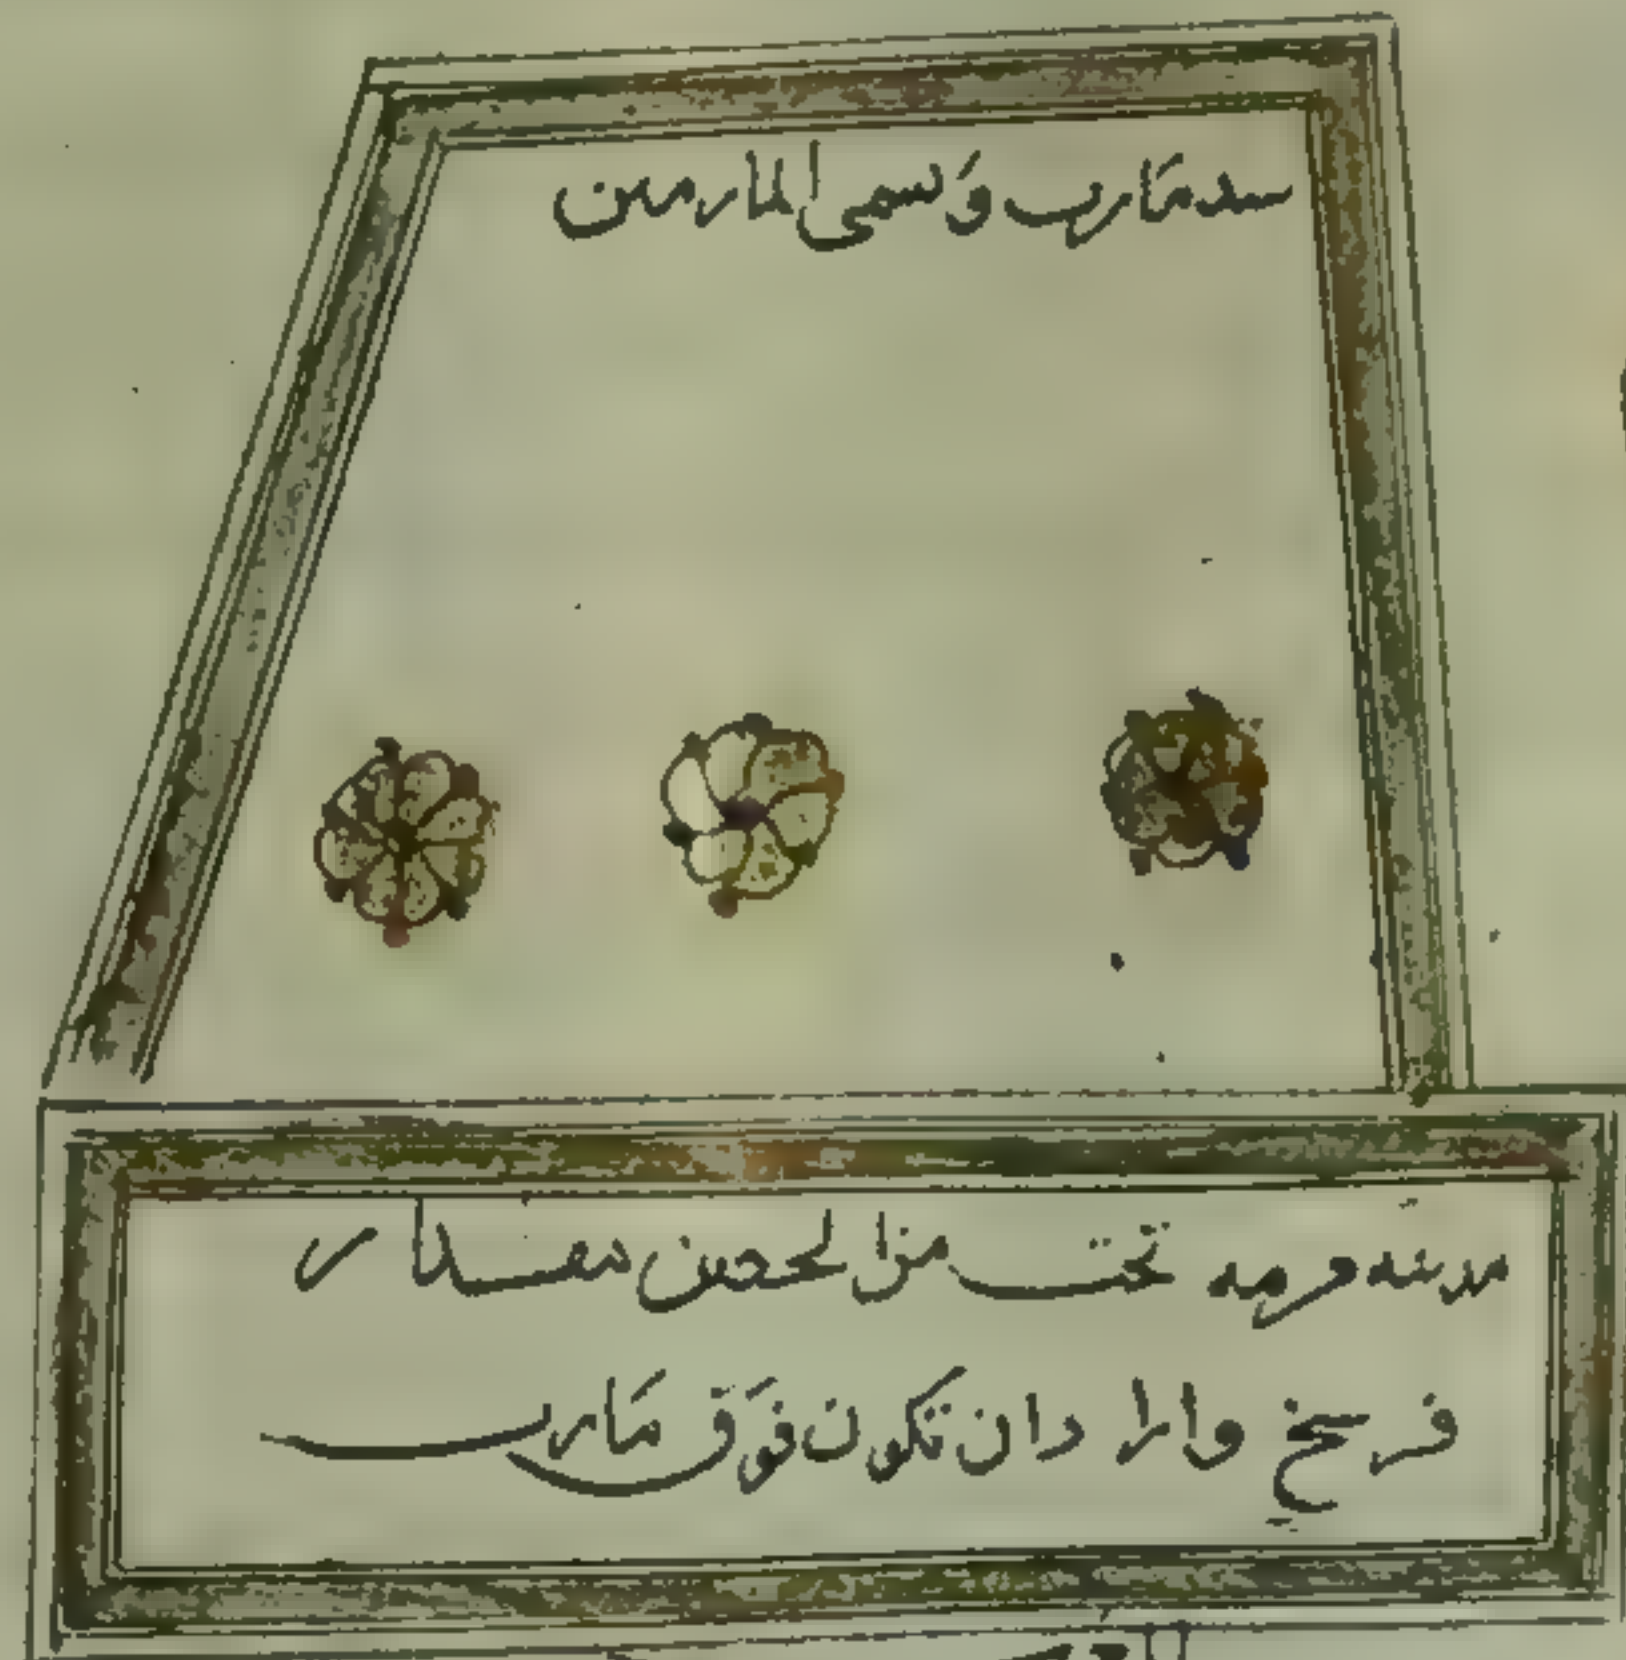 سد مَارب وَسمى المارمين
مدينه قرمه تحت من الحصن مقدار
فرسخ وارا دان تكون فوَق مَارب